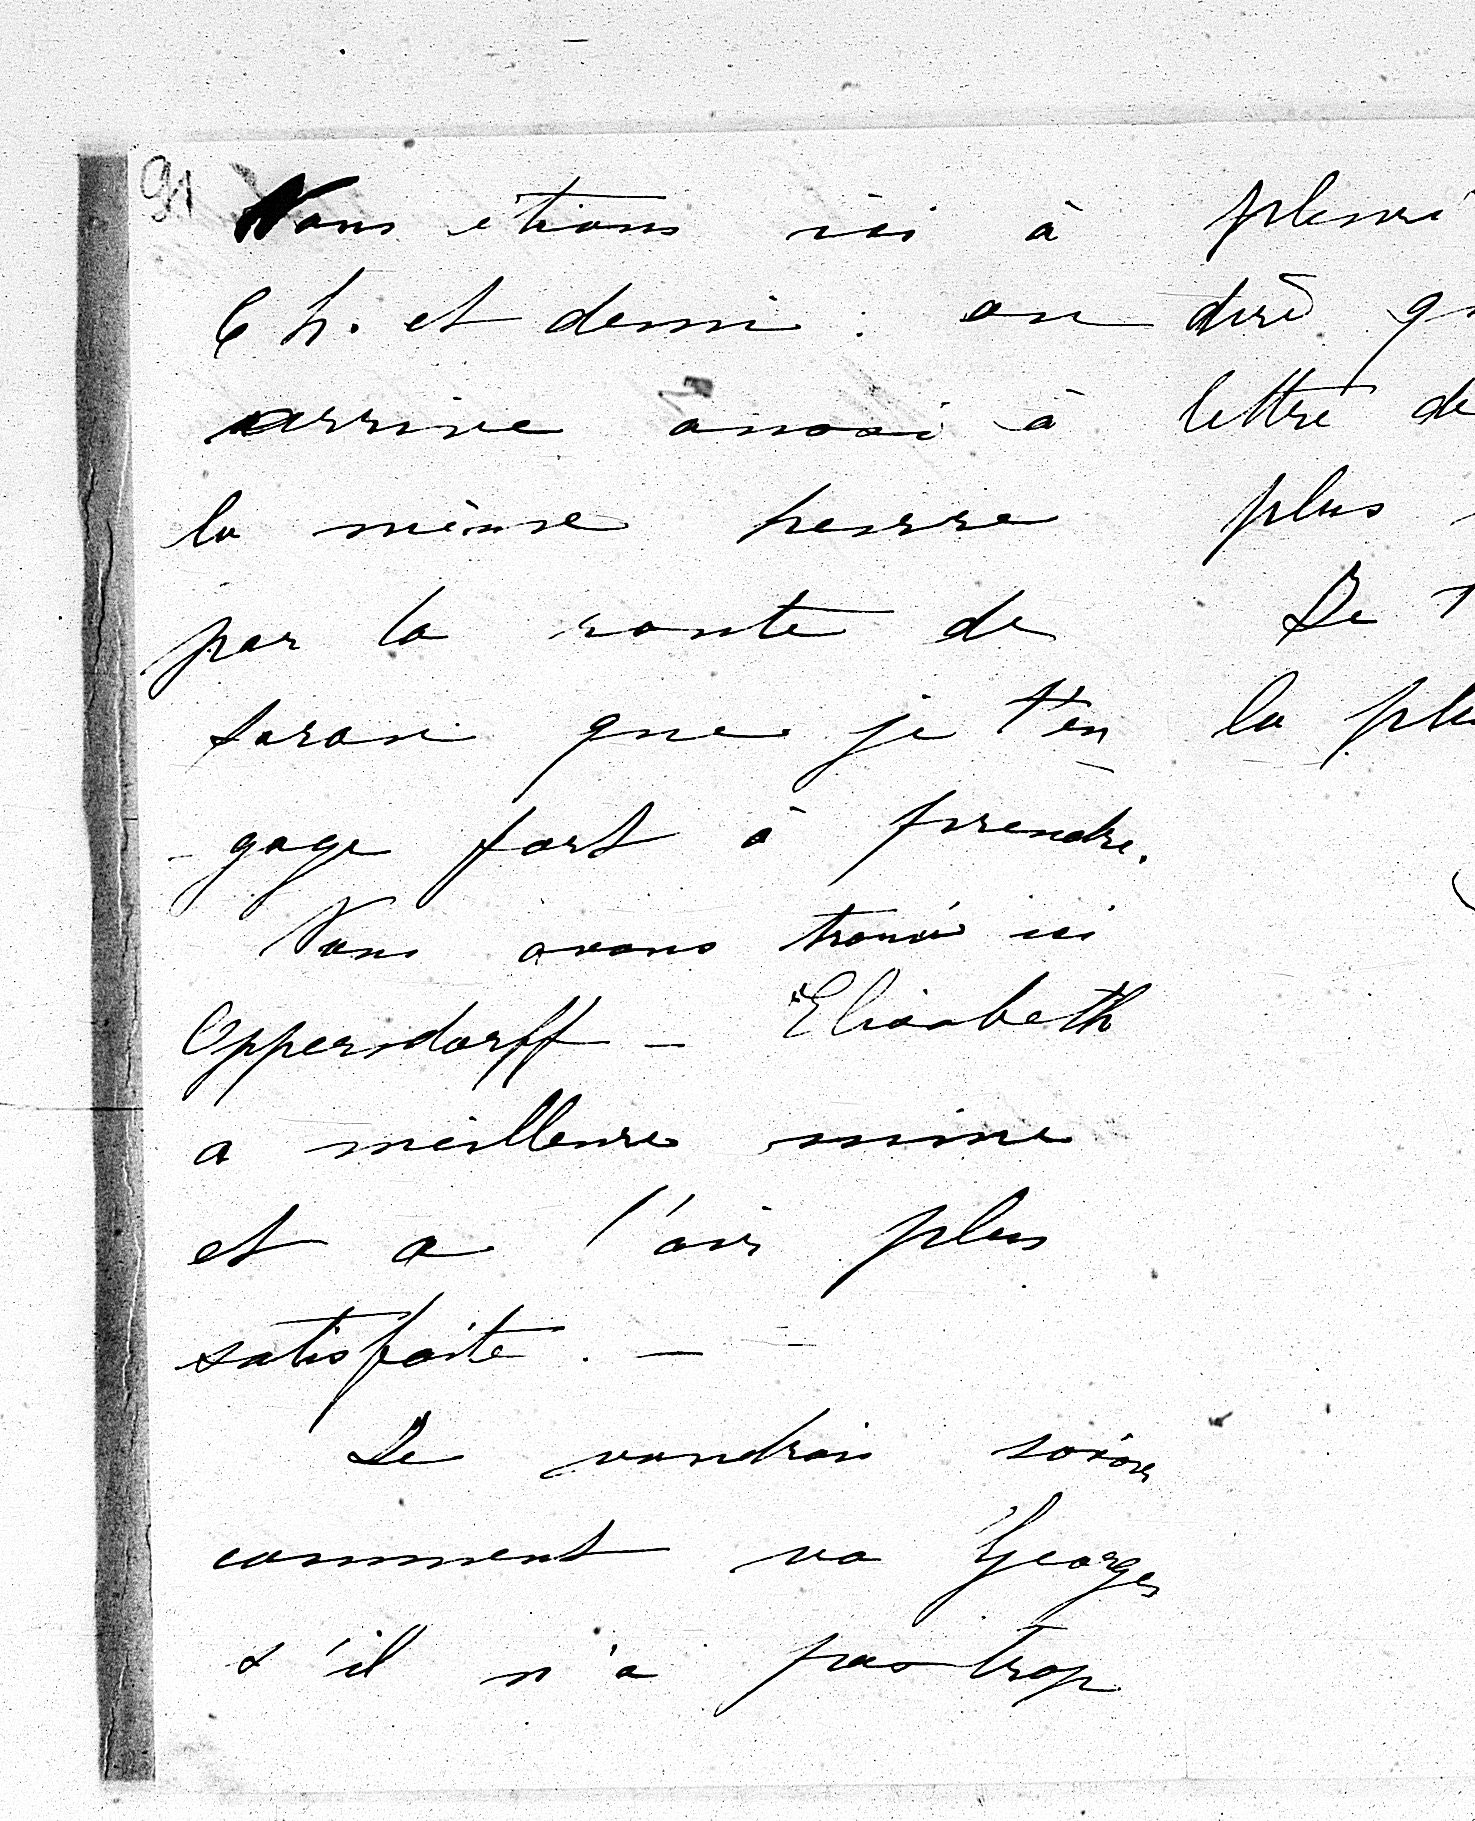 91
Nous étions ici à
6 h. et demi : on
arrive aussi à
la même heure
par la route de
que je t'en
gage fort à prendre.
Nous avons trouvé ici
Oppersdorff – Elisabeth
a meilleure mine
et a l'air plus
satisfaite. –
Je voudrais savoir
comment va Georges
s'il n'a pas trop
dire
lettre de
plus
Je
la